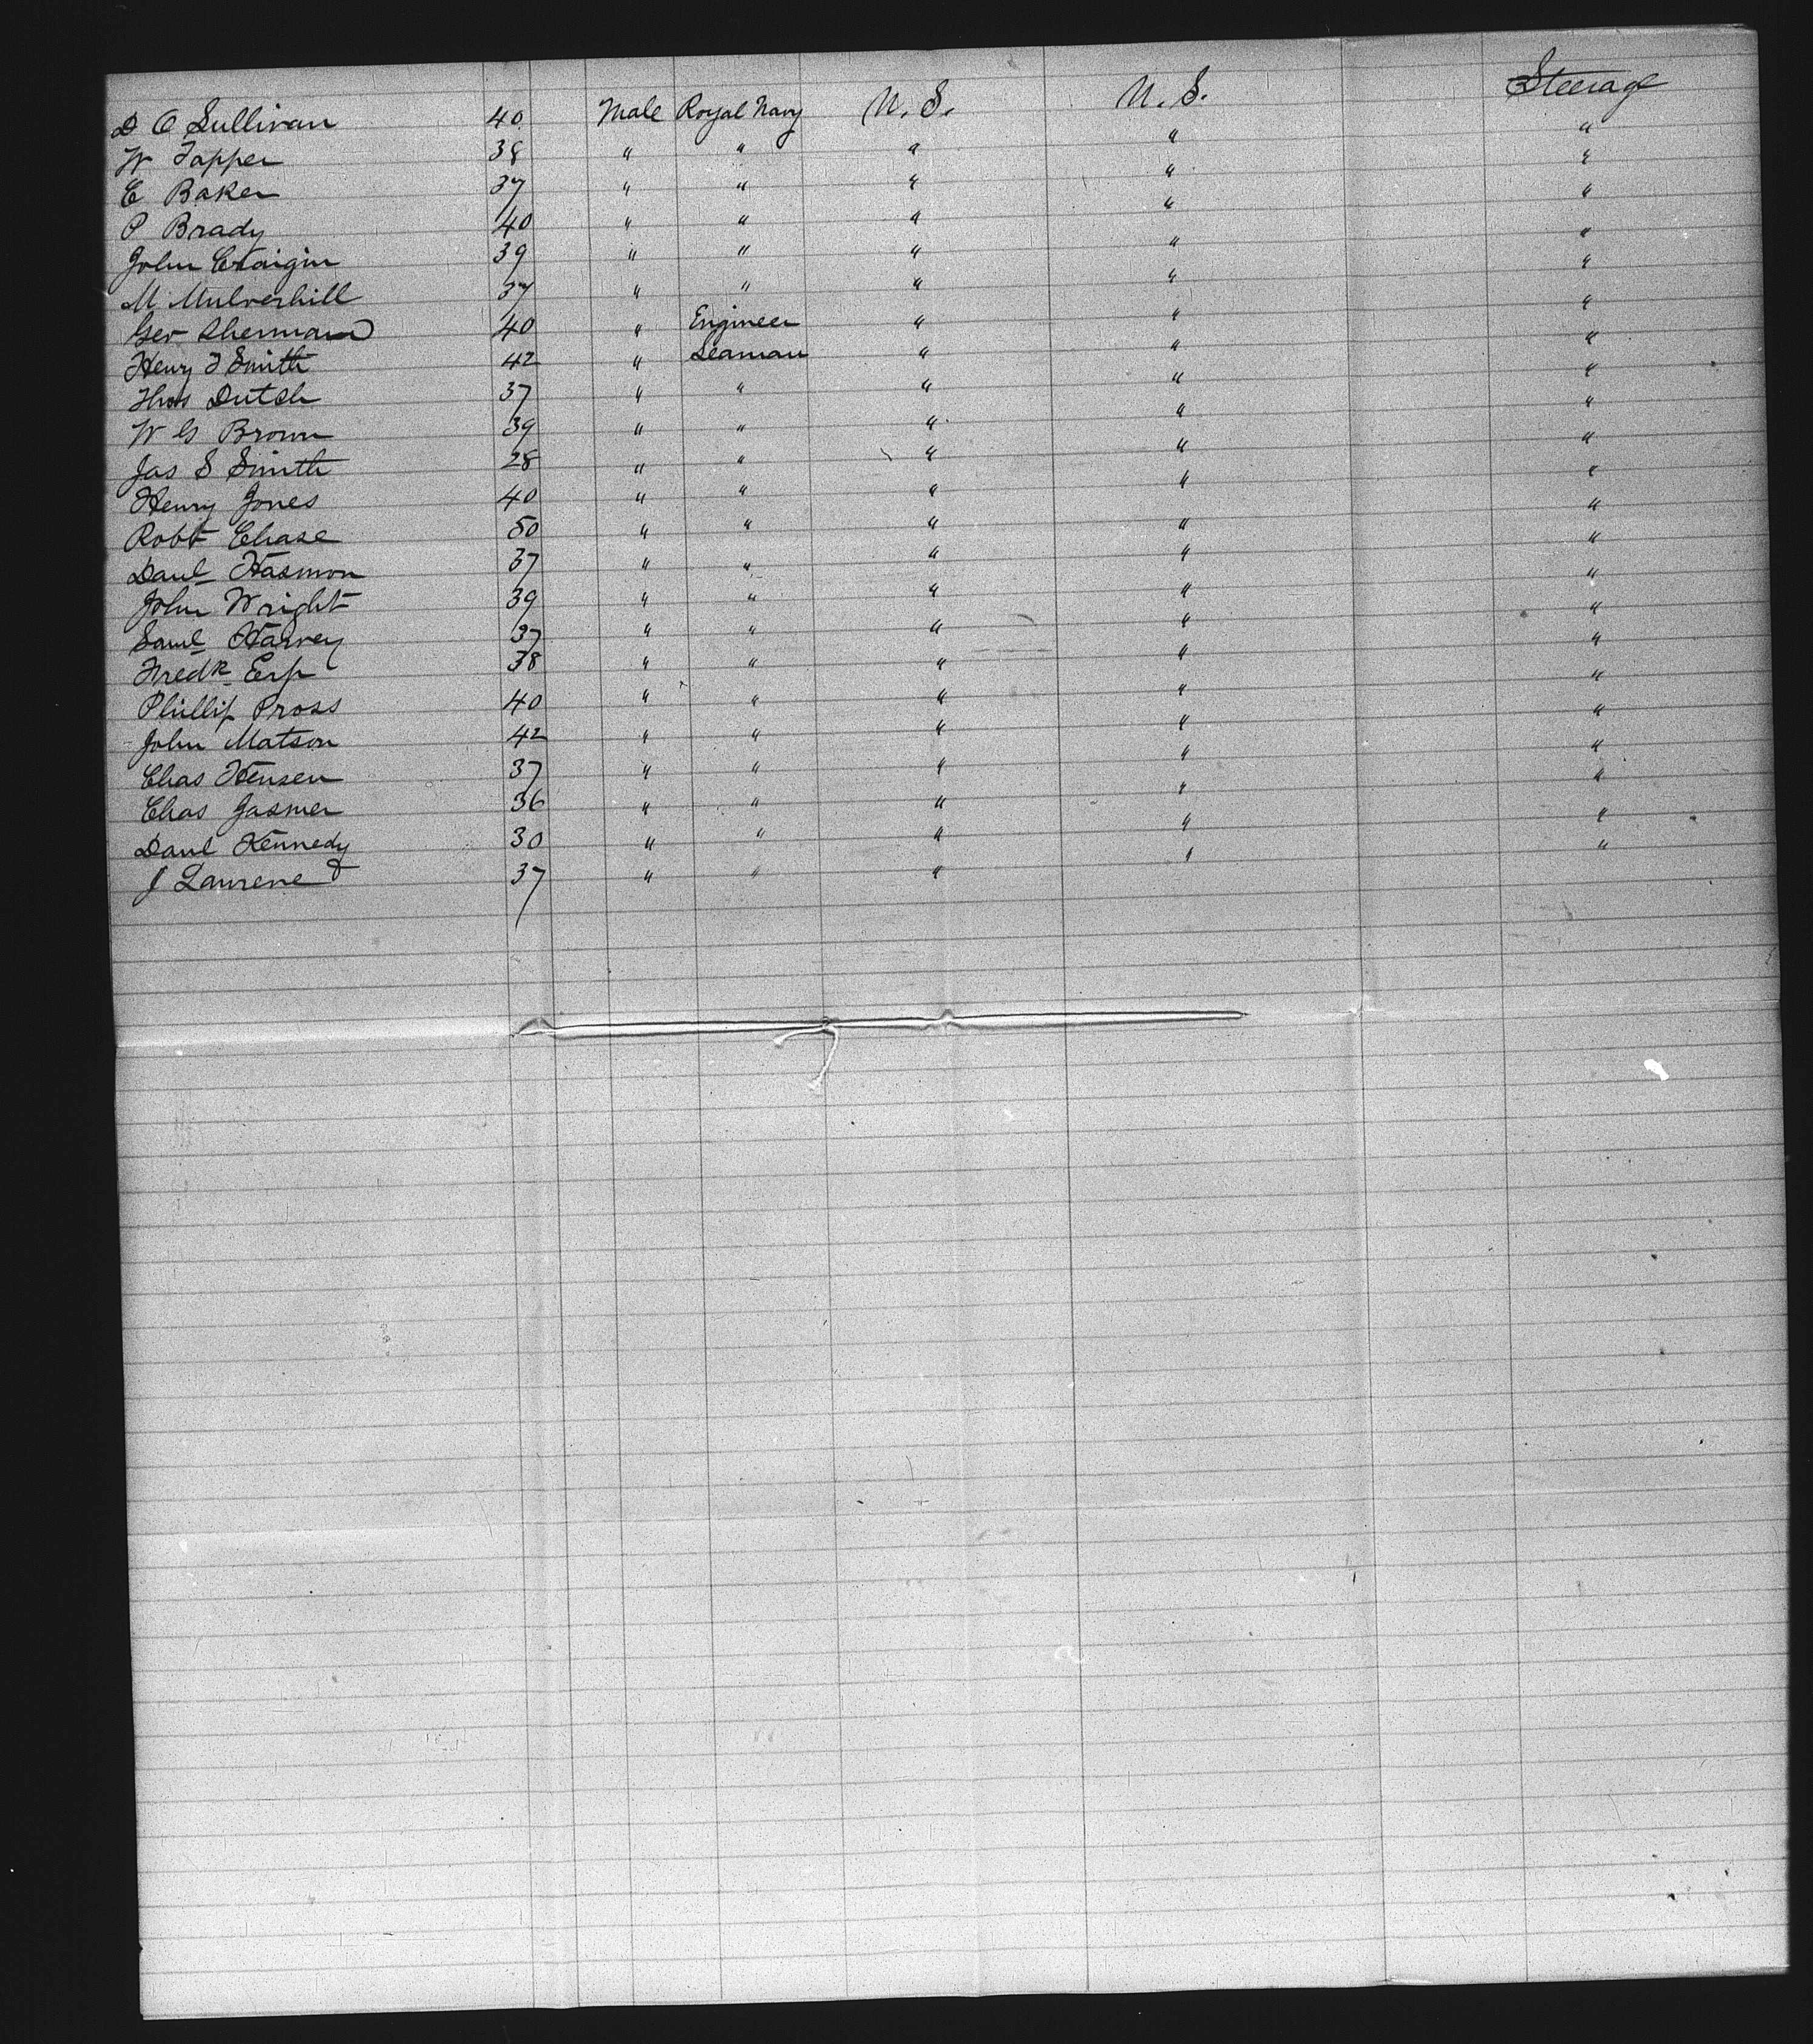 D O Sullivan 40 Male Royal Navy U. S. U. S. Steerage
W Tapper 38 " " " " "
E Baker 37 " " " " "
P Brady 40 " " " " "
John Craigin 39 " " " " "
M Mulverhill 37 " " " " "
Geo Sherman 40 " Engineer " " "
Henry F Smith 42 " Seaman " " "
Thos Dutch 37 " " " " "
W G Brown 39 " " " " "
Jas S Smith 28 " " " " "
Henry Jones 40 " " " " "
Robt Chase 50 " " " " "
Danl Hasmon 37 " " " " "
John Wright 39 " " " " "
Saml Harvey 37 " " " " "
Fredk Erp 38 " " " " "
Phillip Pross 40 " " " " "
John Matson 42 " " " " "
Chas Hensen 37 " " " " "
Chas Jasmer 36 " " " " "
Danl Kennedy 30 " " " " "
J 37 " " " " "